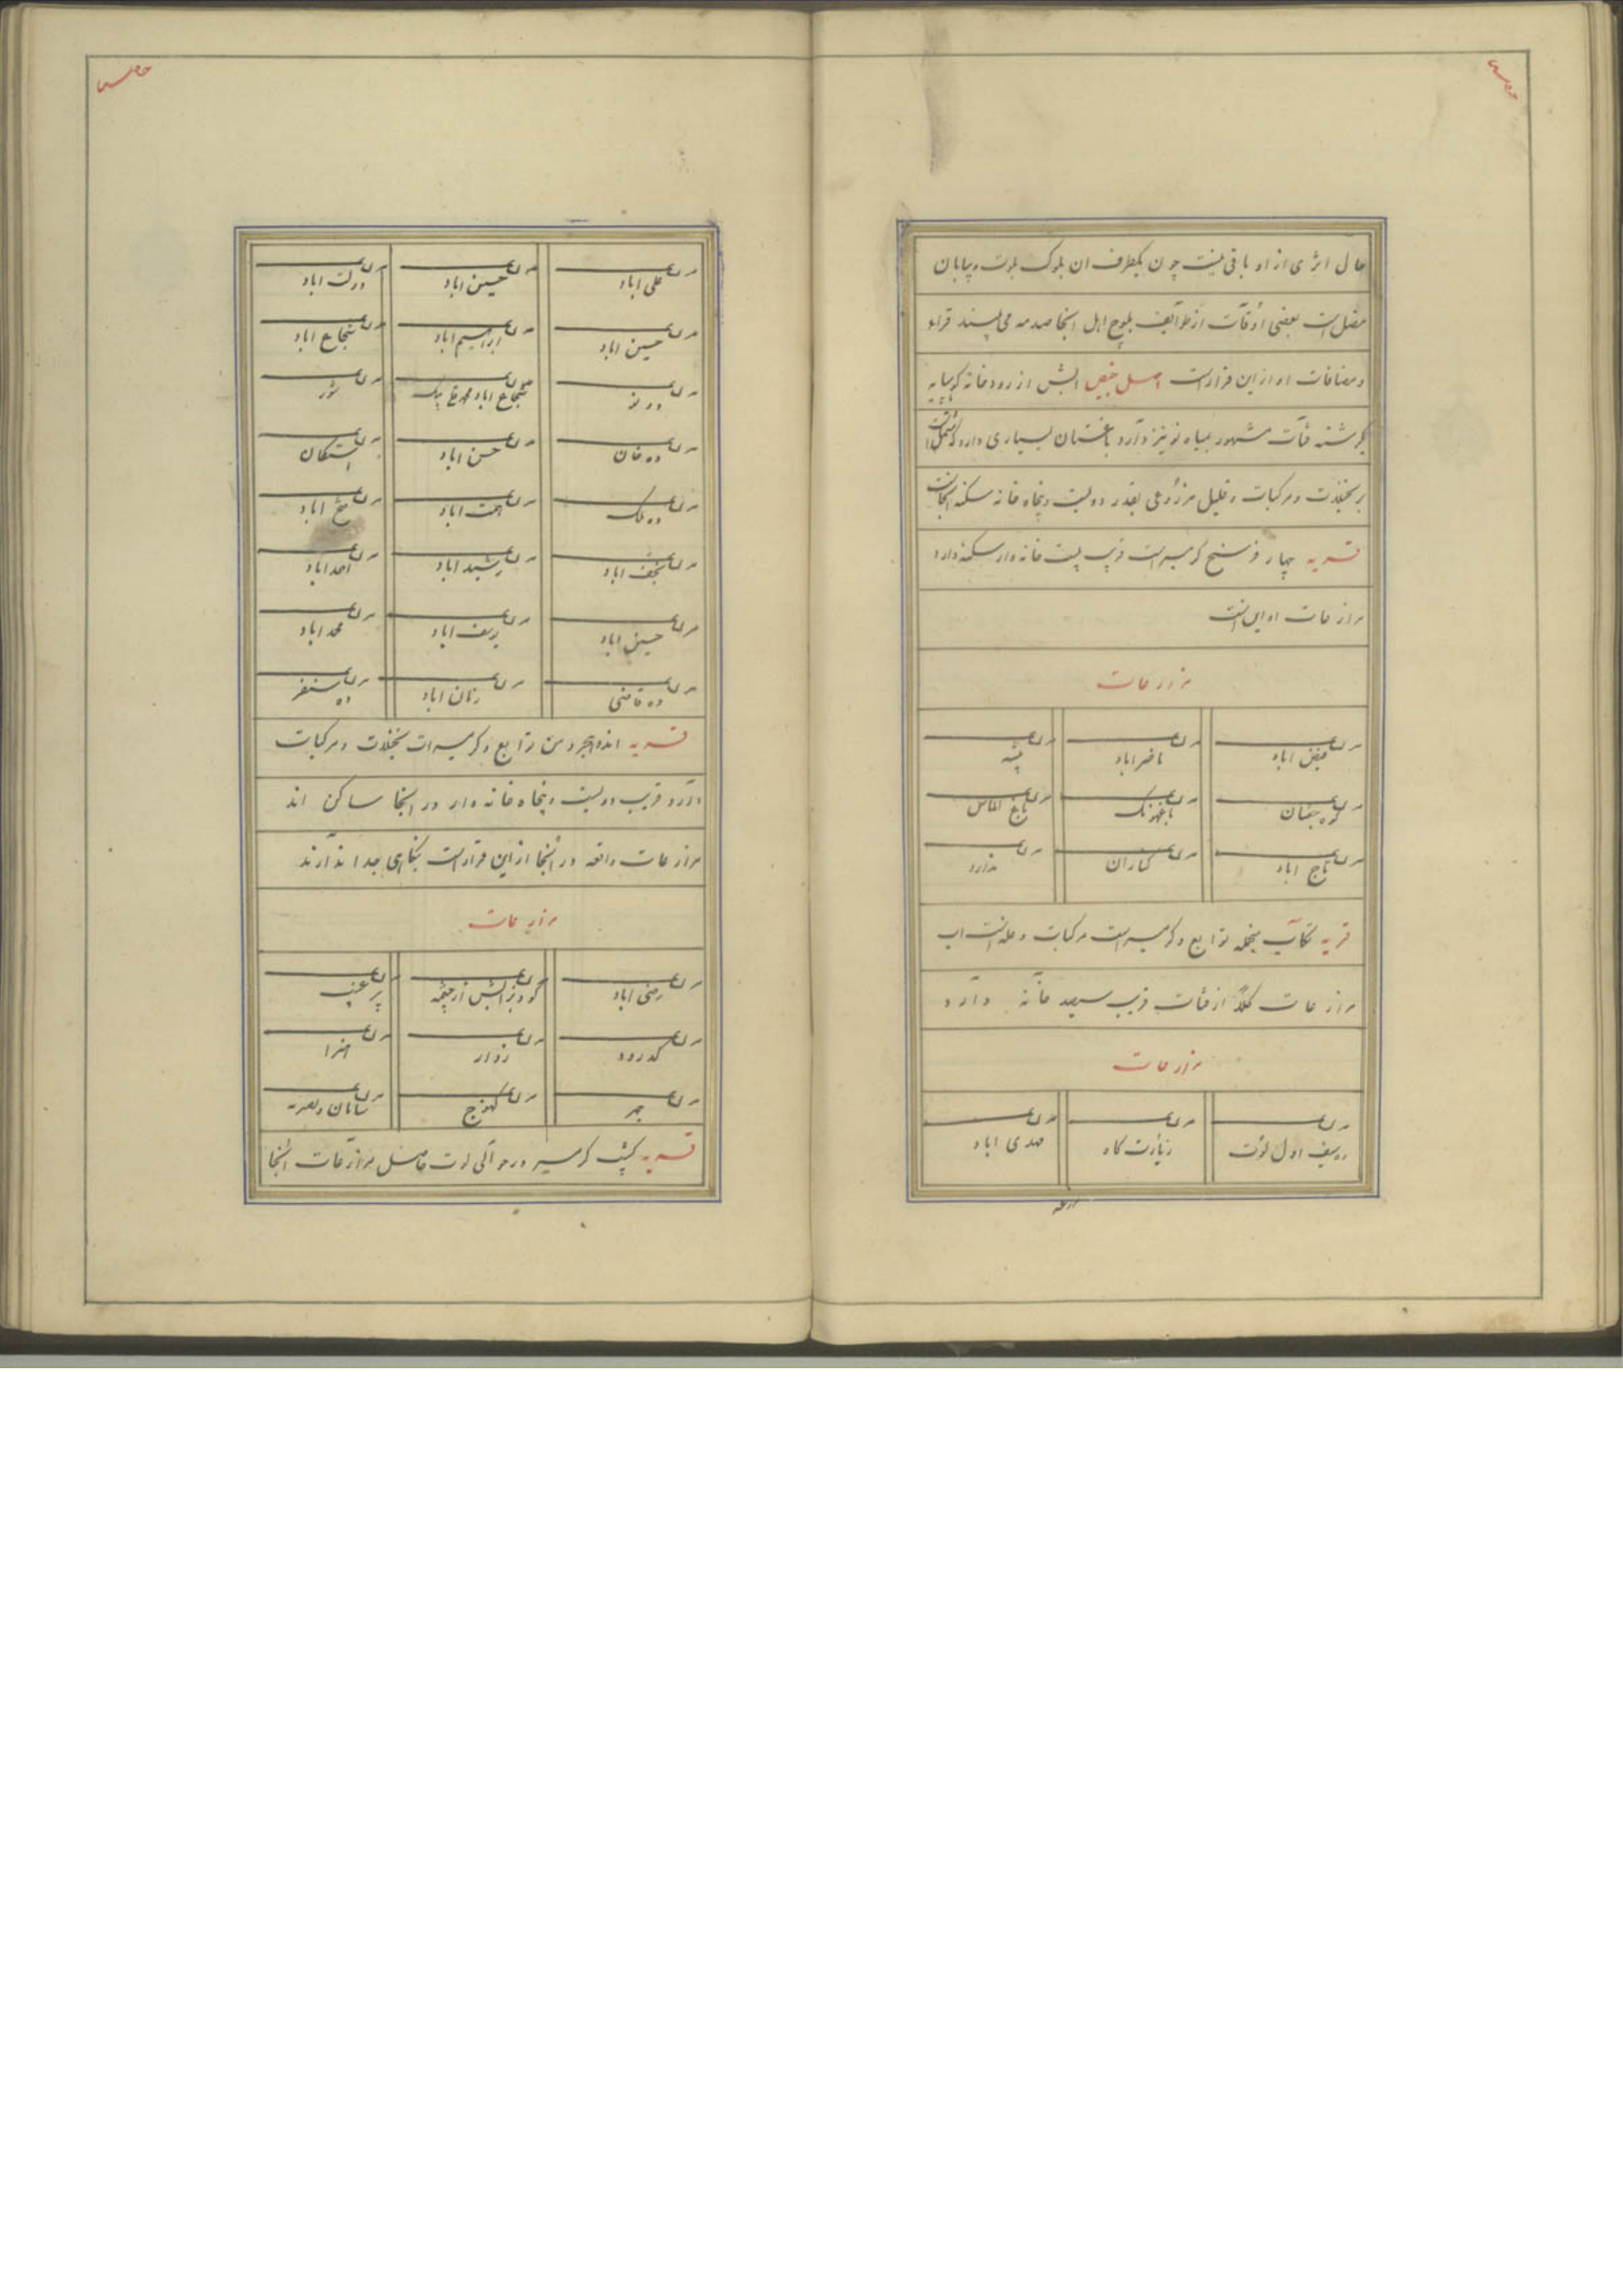 حال اثری از او باقی نیست چون یکطرف ان بلوک بلوت و بیابان
متصل است بعضی اوقات از طوایف بلوچ اهل انجا صدمه می بینند قرا و
و مضافات او از این قرار است اصل خبیص ابش از رودخانه کوهپایه
گرشته قنات مشهور بمیاه نو نیز دارد باغستان بسیاری دارد که مشتمل است
بر نخیلات و مرکبات و قلیل مزروعی بقدر دویست و پنجاه خانه سکنه انجاست
قریه چهار فرسخ گرمسیر است قریب بیست خانه وار سکنه دارد
مزارعات او این است
مزارعات
مزرعه فیض اباد مزرعه ناصر اباد مزرعه پشه
مزرعه مزرعه مزرعه باغ الماس
مزرعه تاج اباد مزرعه کناران ندارد
قریه تکاب منجمله توابع و گرمسیر است مرکبات و غله است اب
مزارعات کلاً از قنات قریب سیصد خانه دارد
مزارعات
مزرعه یوسف اول لوت مزرعه زیارت کاه مزرعه مهدی اباد
مزرعه
مزرعه علی اباد مزرعه حسین اباد مزرعه دولت اباد
مزرعه حسین اباد مزرعه ابراهیم اباد مزرعه شجاع اباد
مزرعه ده نو مزرعه شجاع اباد بیک مزرعه شور
مزرعه ده خان مزرعه حسن اباد مزرعه
مزرعه ده ملک مزرعه همت اباد مزرعه فتح اباد
مزرعه نجف اباد مزرعه رشید اباد مزرعه احمد اباد
مزرعه حسین اباد مزرعه یوسف اباد مزرعه محمد اباد
مزرعه ده قاضی مزرعه زمان اباد مزرعه
قریه اندوهجرد من توابع و گرمسیر است نخیلات و مرکبات
دارد قریب دویست و پنجاه خانه وار در انجا ساکن اند
مزارعات واقعه در انجا از این قرار است بنکاهی جدا ندارند
مزارعات
مزرعه رضی اباد مزرعه گودیز ابش از چشمه مزرعه
مزرعه کدرود مزرعه زوار مزرعه
مزرعه جهر مزرعه کهنوج مزرعه
قریه کشیت گرمسیر در حوالی لوت حاصل مزارعات انجا